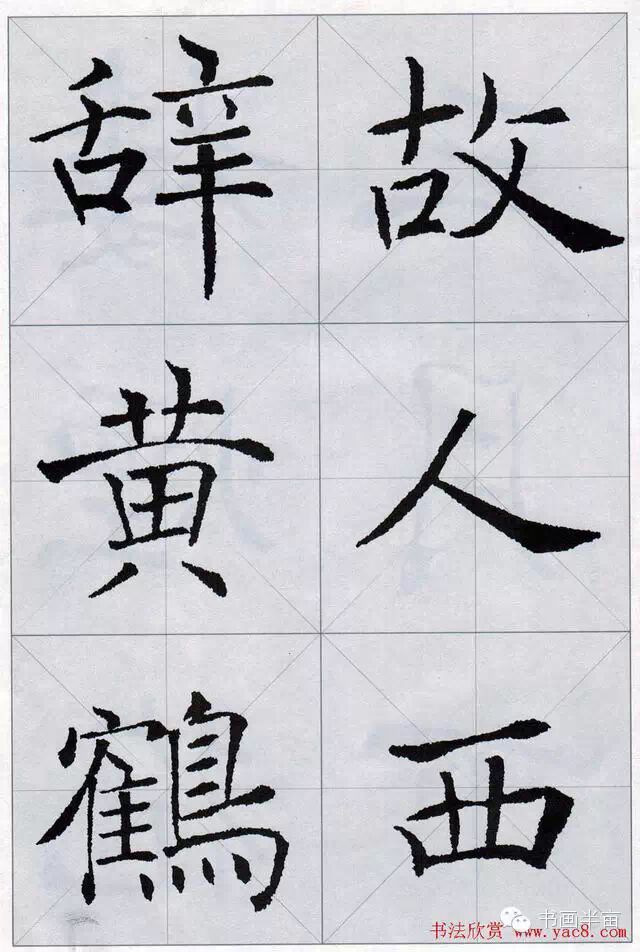 故人西
辞黄鹤
书画半亩
书法欣赏 www.yac8.com